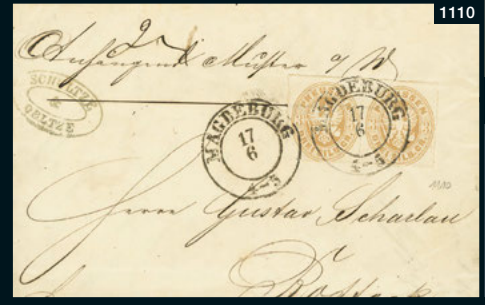 1110
Anhangend Muster o/W
SCHULTZE
&
OELTZE
MAGDEBURG
17
6
4-5
MAGDEBURG
17
6
4-5
PREUSSEN
1110
Herrn Gustav Scharlau
Rostock